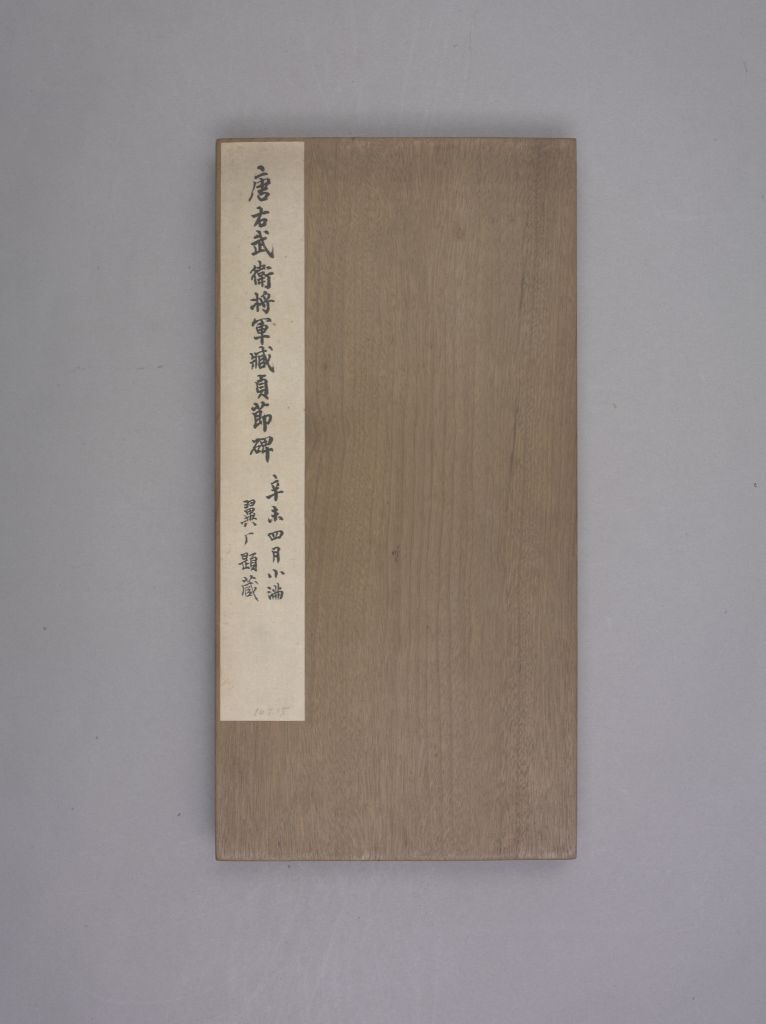 唐右武衛将軍臧貞節碑
辛未四月小滿
翼厂題蔵